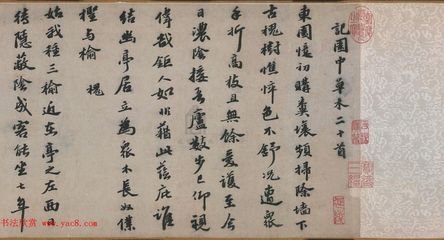 記園中草木二十首
東園憶初購糞壤頻掃除墻下
古槐樹憔悴色不舒況遭眾
手折高枝且無餘愛護至今
日濃陰接吾廬數步已仰視
偉哉鉅人如非藉此庇誰
結幽亭居立為眾木長奴僕
檉与榆 槐
始我種三榆近在亭之左西日
待隱蔽陰成客能坐七年
书法欣赏 www.yac8.com